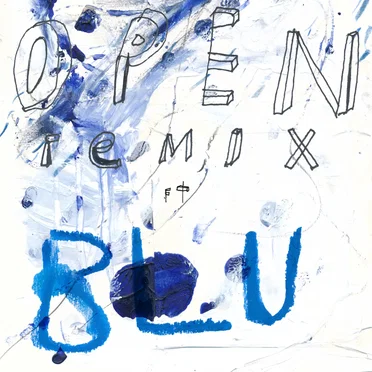 OPEN
remix
ft
BLU